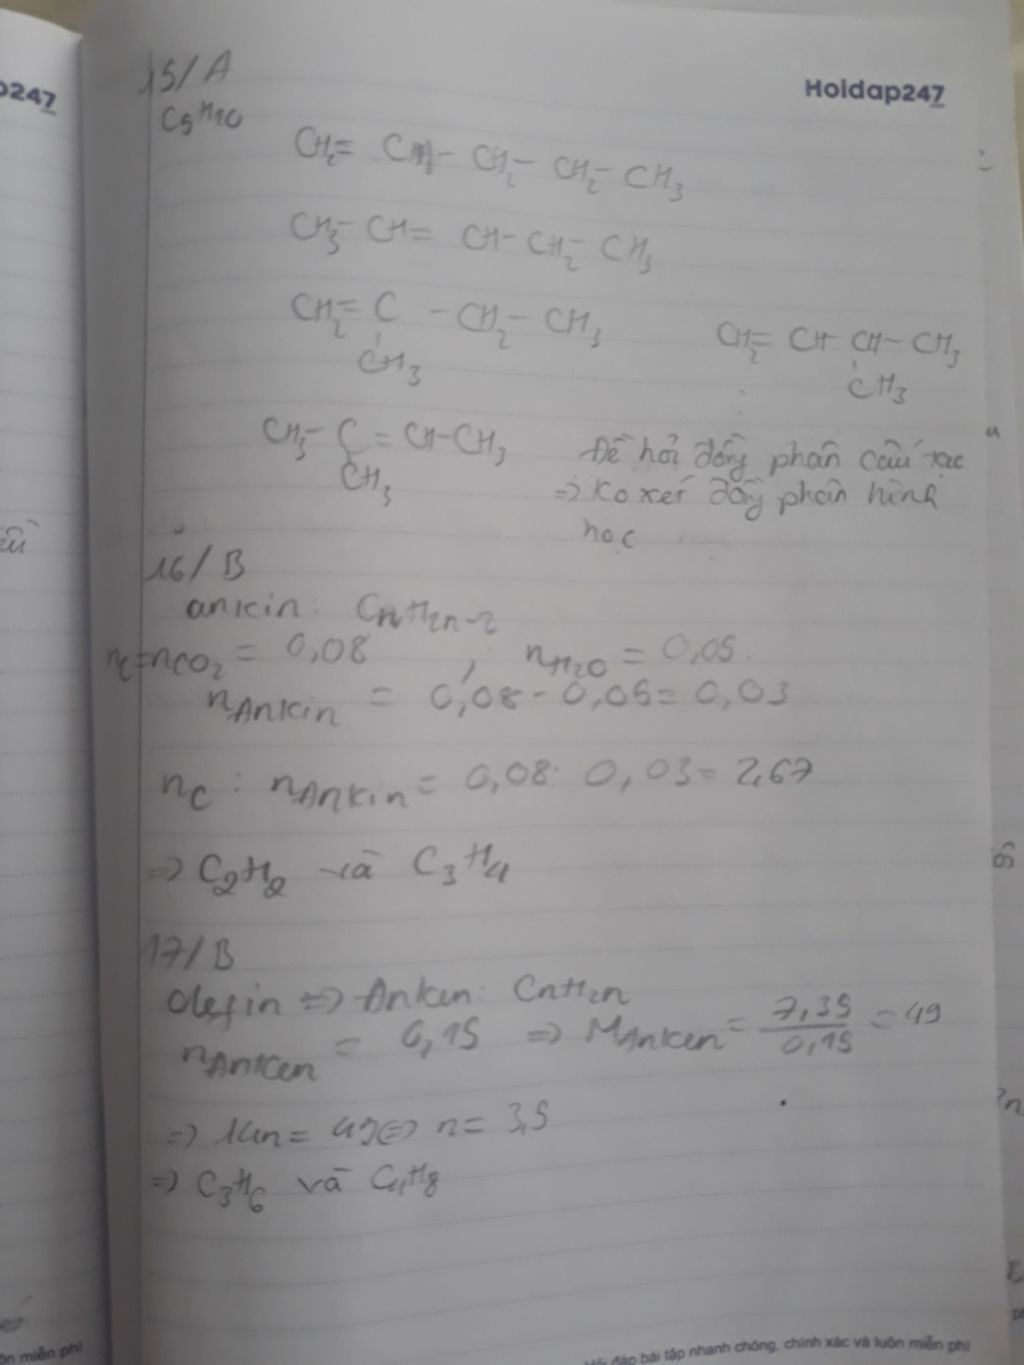 247
Hoidap247
15/A
C5H10
CH2= CH- CH2- CH2- CH3
CH3- CH= CH- CH2- CH3
CH2= C - CH2- CH3
CH3
CH2= CH CH- CH3
CH3
CH3- C = CH-CH3
CH3
Đề hỏi đồng phân cấu tạc
=> Ko xét đồng phân hình
học
16/B
ankin: CnH2n-2
nC=nCO2 = 0,08 ; nH2O = 0,05.
nAnkin = 0,08 - 0,05= 0,03
nC : nAnkin = 0,08: 0,03= 2,67
=> C2H2 và C3H4
17/B
Olefin => Anken: CnH2n
nAnken = 0,15 => MAnken = 7,35/0,15 = 49
=> 14n= 49<=> n= 3,5
=> C3H6 và C4H8
ôn miễn phí
Hỏi đáp bài tập nhanh chóng, chính xác và luôn miễn phí